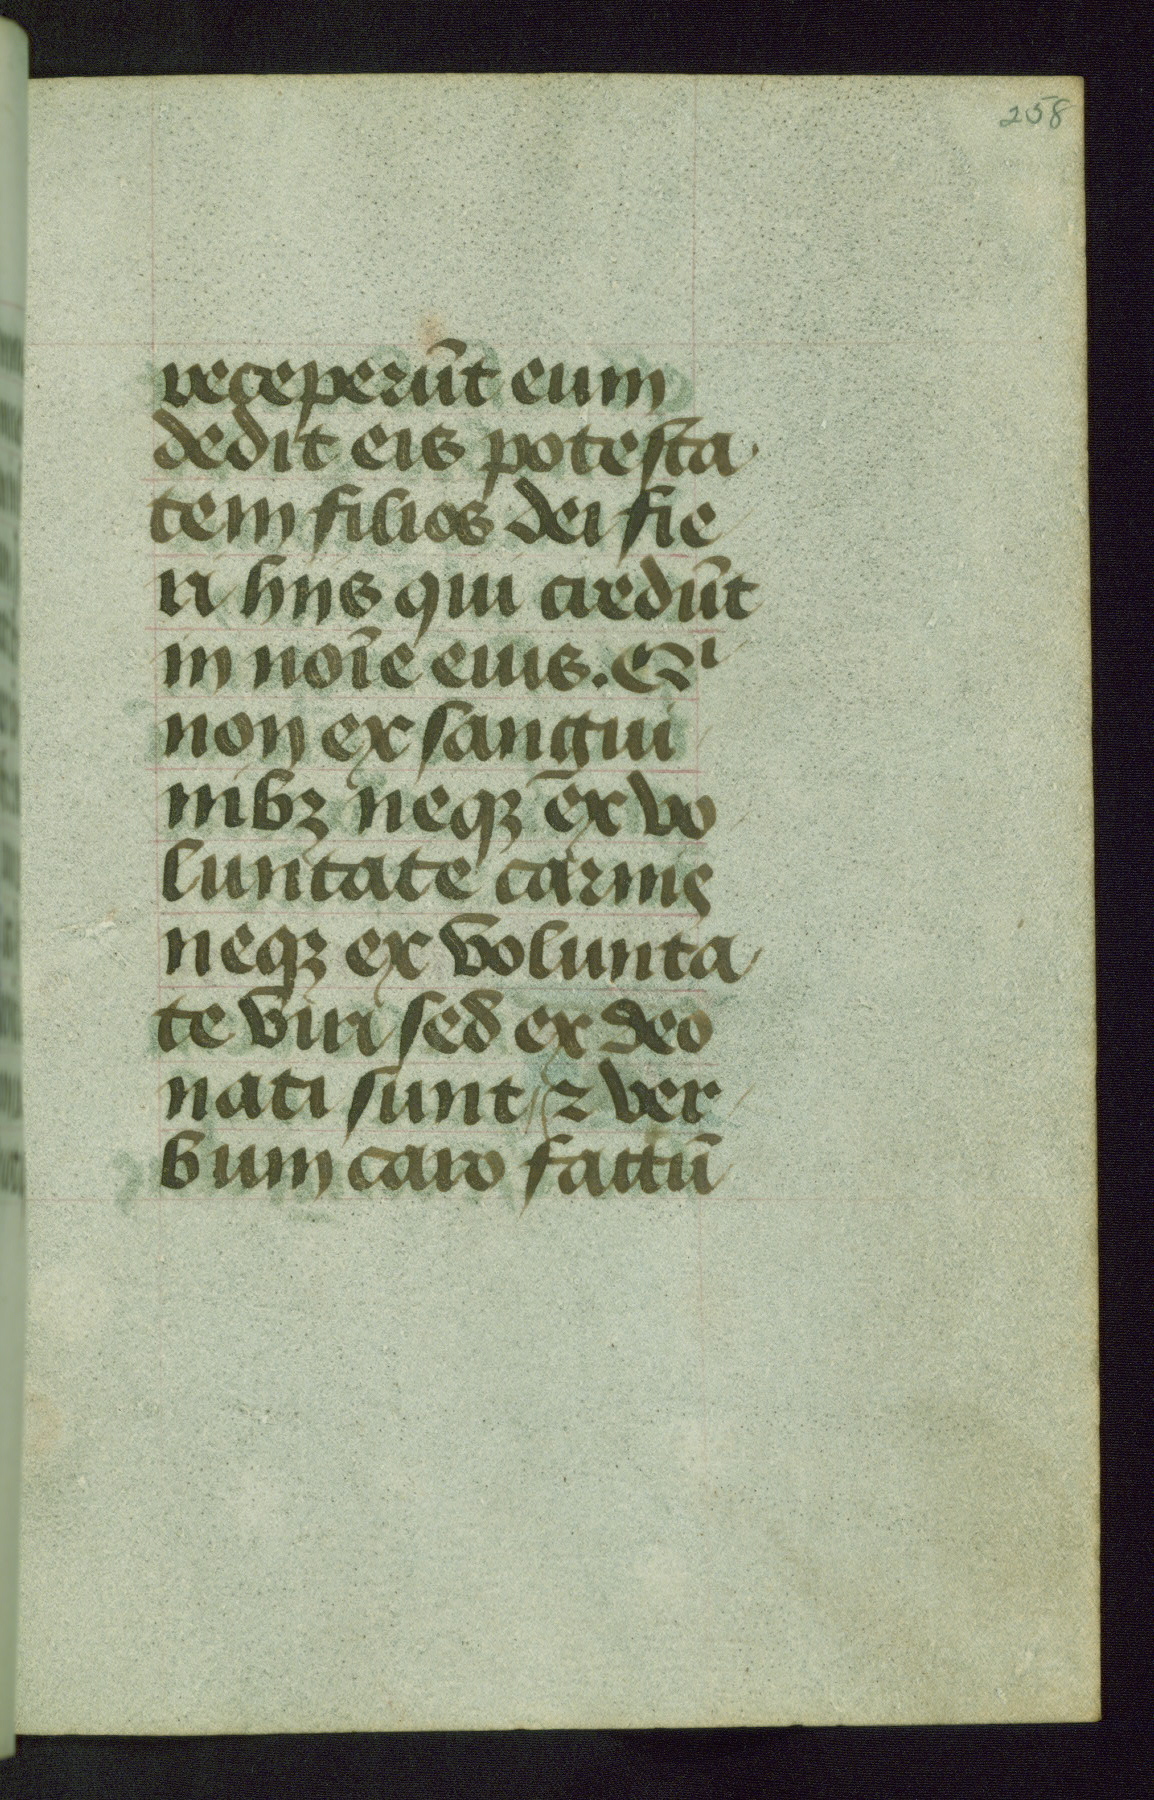 258
receperūt eum
dedit eis potesta
tem filios dei fie
ri hiis qui credūt
in noīe eius. Qi
non ex sangui
nibꝫ neqꝫ ex vo
luntate carnis
neqꝫ ex volunta
te viri sed ex deo
nati sunt ⁊ ver
bum caro factū